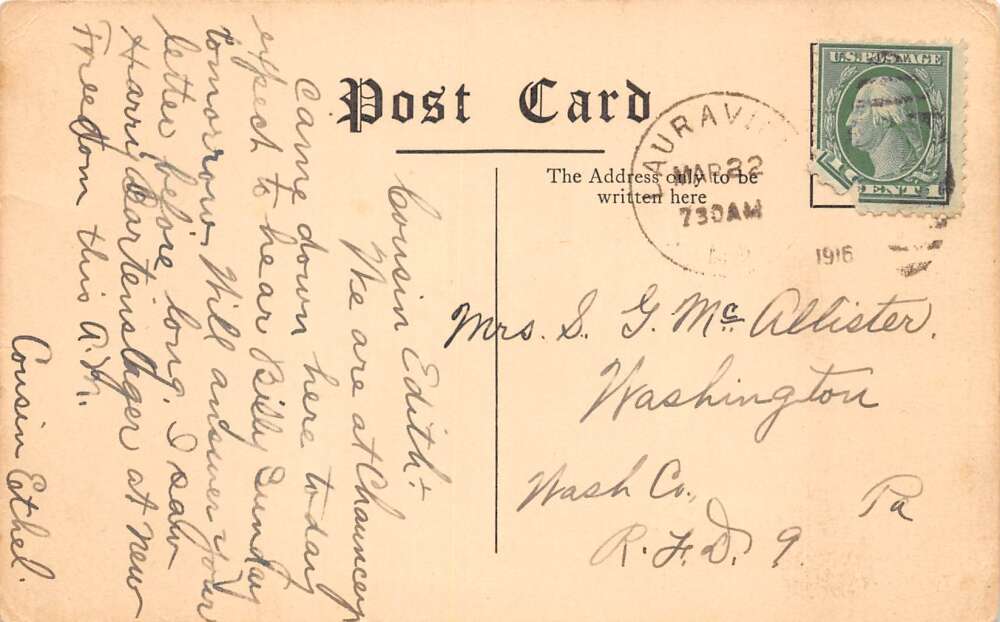 Post Card
The Address only to be
written here
U.S. POSTAGE
1 CENT 1
MAR 22
730AM
1916
Cousin Edith: +
We are at Chauncey
Came down here today
expect to hear Billy Sunday
tomorrow. Will answer your
letter before long. I saw
Harry at New
Freedom this A.M.
Cousin Ethel.
Mrs. S. G. Mc Allister.
Washington
Wash Co., Pa
R. F. D. 9